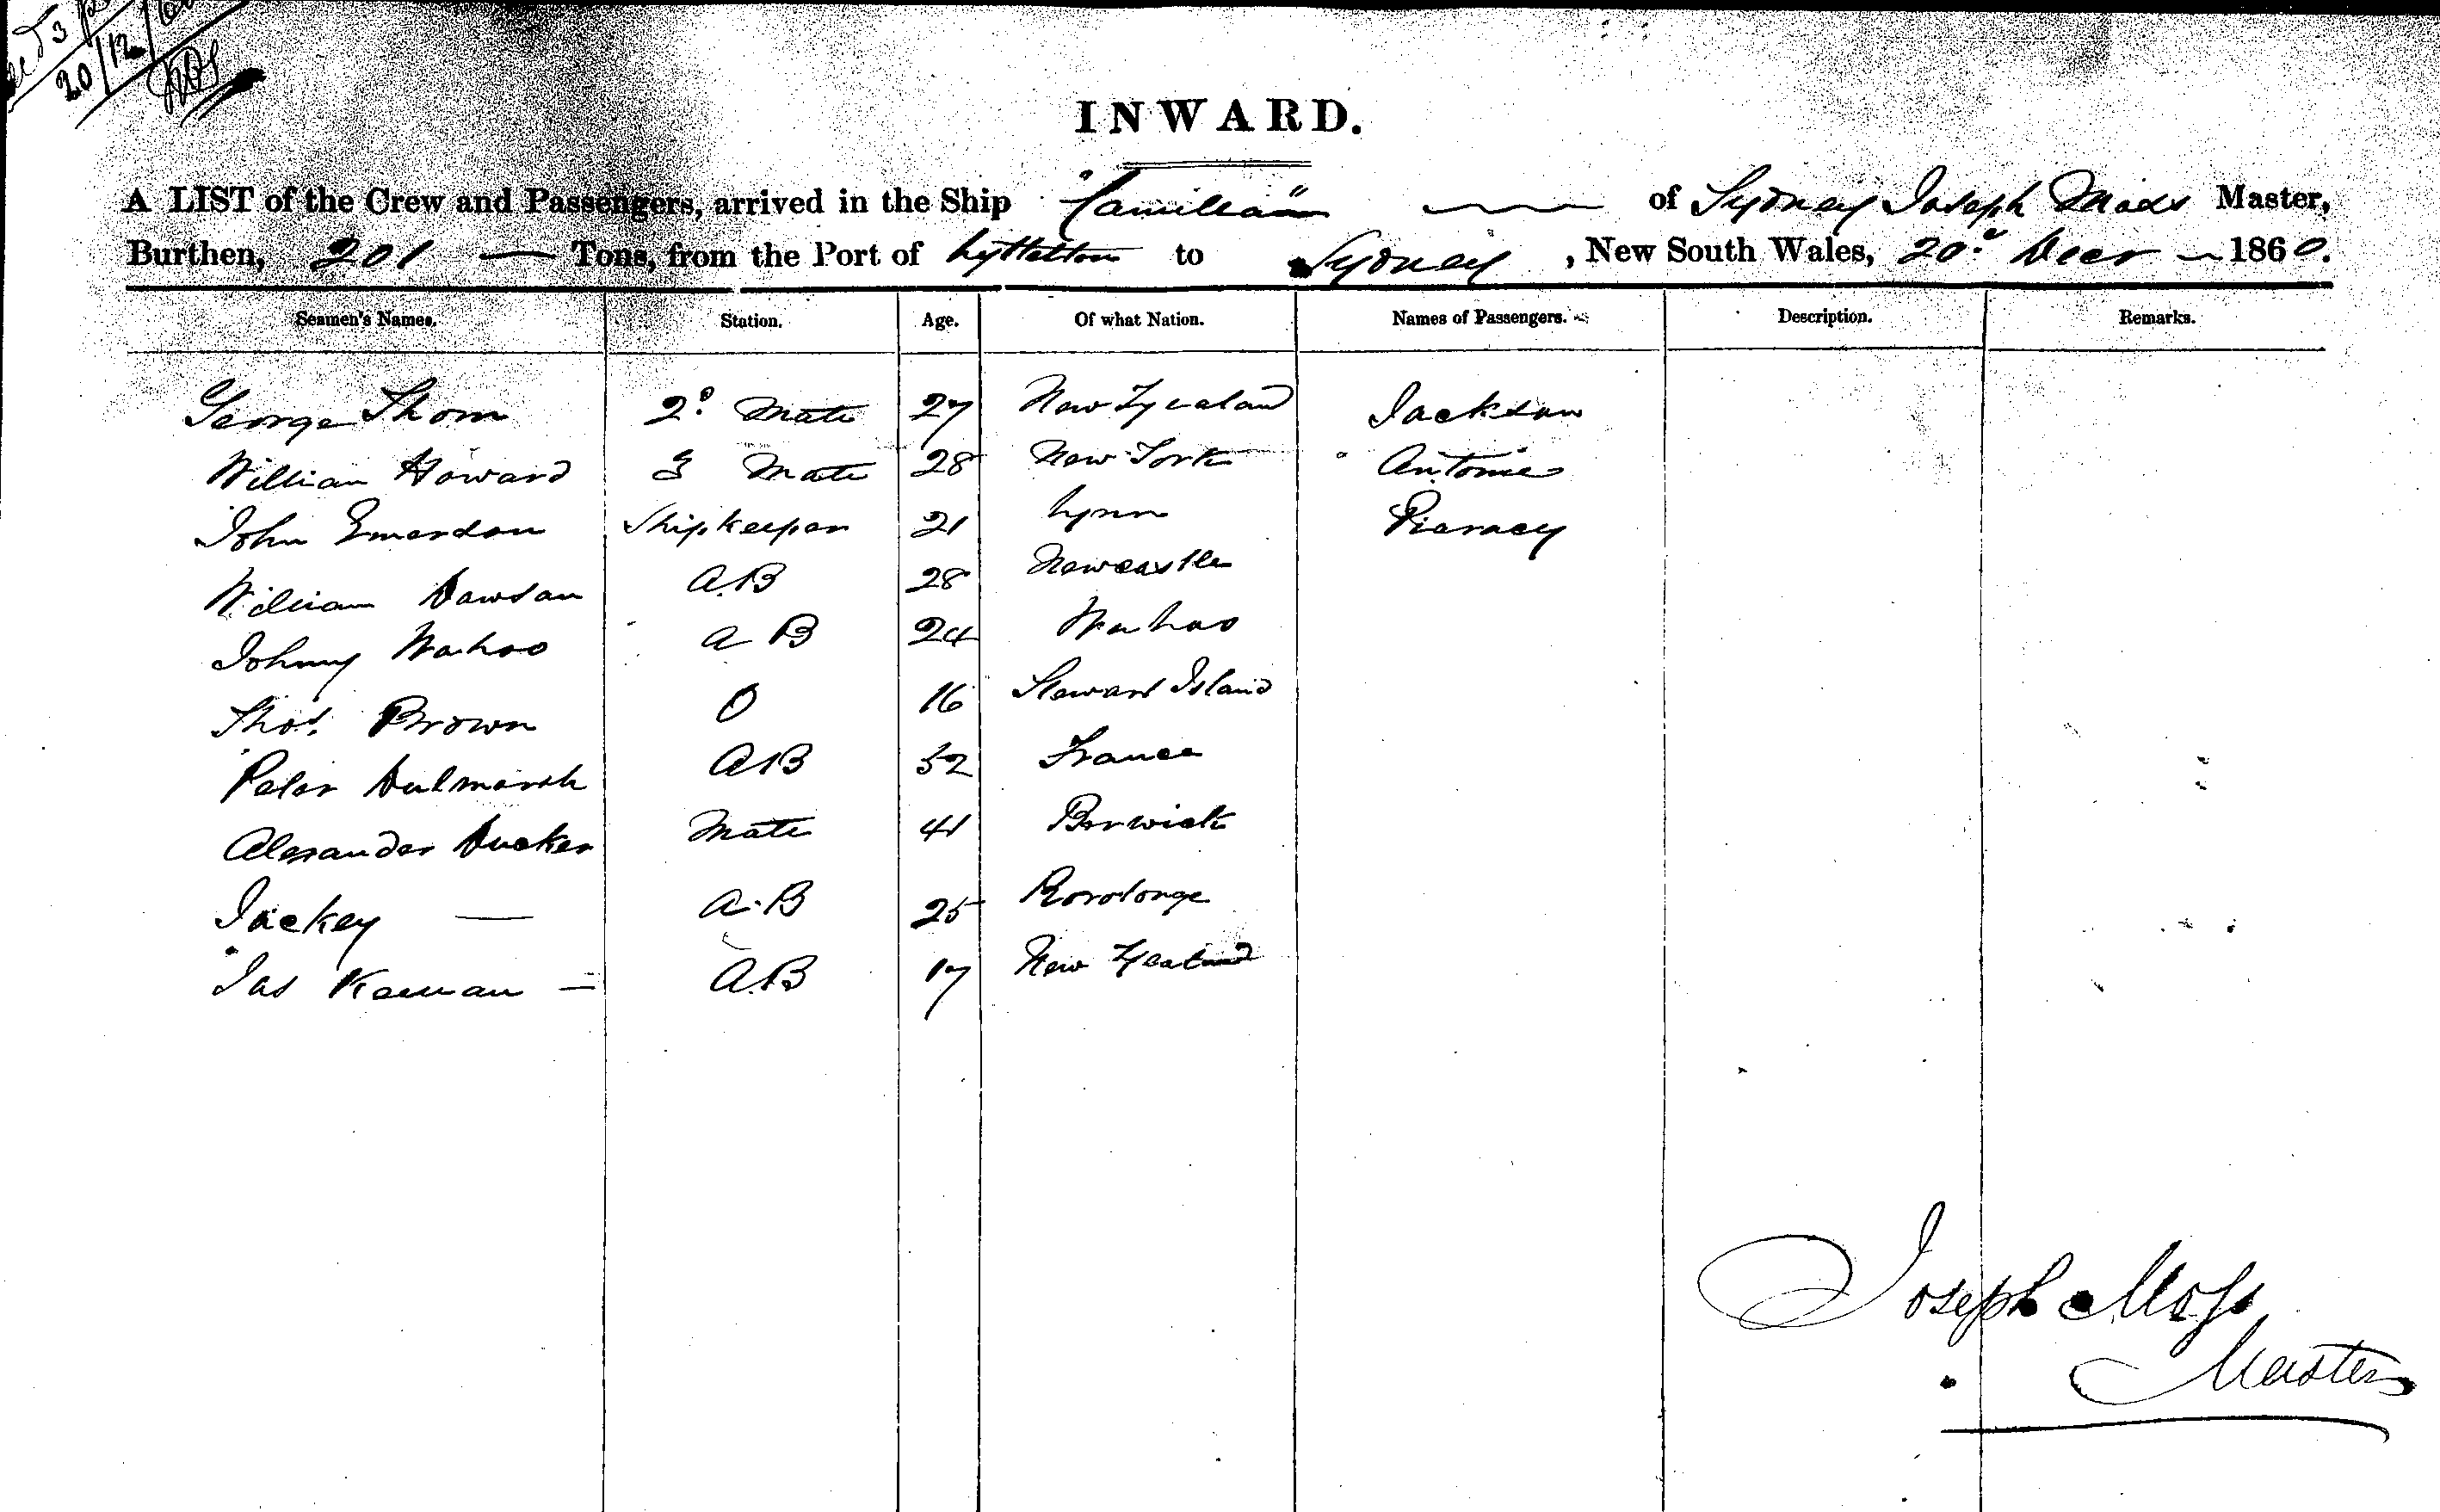 20/12/60
INWARD.
A LIST of the Crew and Passengers, arrived in the Ship "Camillia" of Sydney Joseph Moss Master,
Burthen, 201 — Tons, from the Port of Lyttelton to Sydney, New South Wales, 20th Decr 1860.
Seamen's Names. Station. Age. Of what Nation. Names of Passengers. Description. Remarks.
George Thom 2d Mate 27 New Zyealand Jackson
William Howard 3 Mate 28 New York Antonie
John Emerson Shipkeeper 21 Lynn Piercey
William Dawson A.B 28 Newcastle
Johnny Wahoo A B 24 Wahoo
Thos. Brown O 16 Stewart Island
Peter Dulmarsh AB 52 France
Alexander Ducker Mate 41 Berwick
Jackey — A.B 25 Rorotonge
Jas Keenan — A.B 17 New Zealand
Joseph Moss
Master